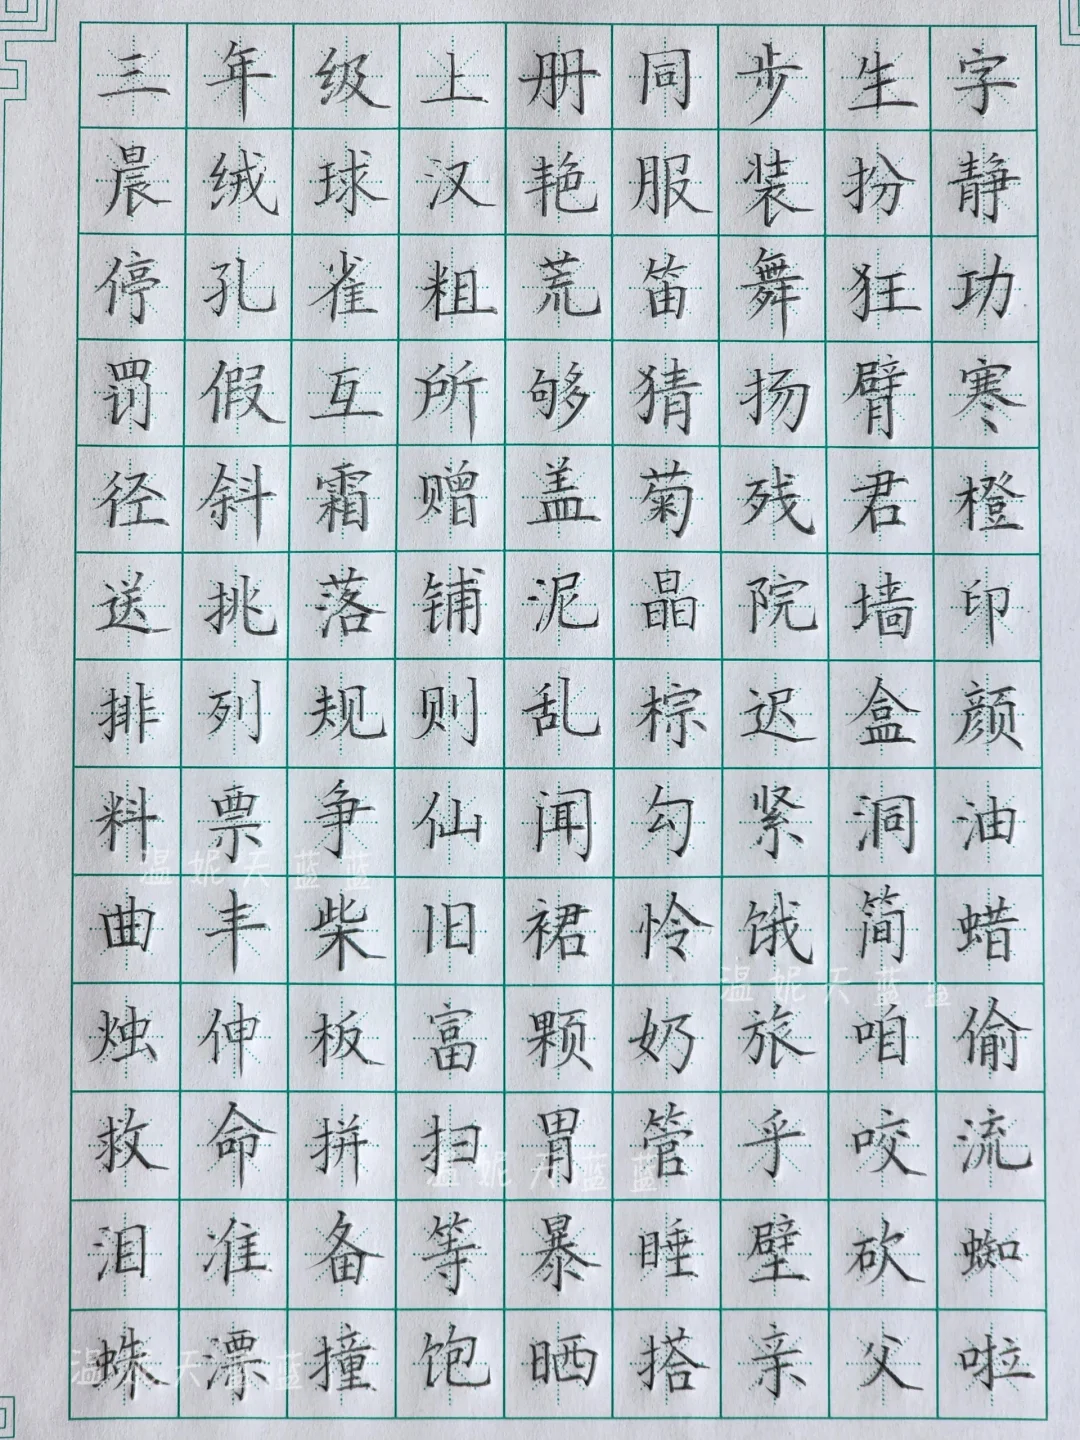 三年级上册同步生字
晨绒球汉艳服装扮静
停孔雀粗荒笛舞狂功
罚假互所够猜扬臂寒
径斜霜赠盖菊残君橙
送挑落铺泥晶院墙印
排列规则乱棕迟盒颜
料票争仙闻勾紧洞油
温妮天蓝蓝
曲丰柴旧裙怜饿简蜡
温妮天蓝蓝
烛伸板富颗奶旅咱偷
救命拼扫胃管乎咬流
温妮天蓝蓝
泪准备等暴睡壁砍蜘
蛛漂撞饱晒搭亲父啦
温妮天蓝蓝